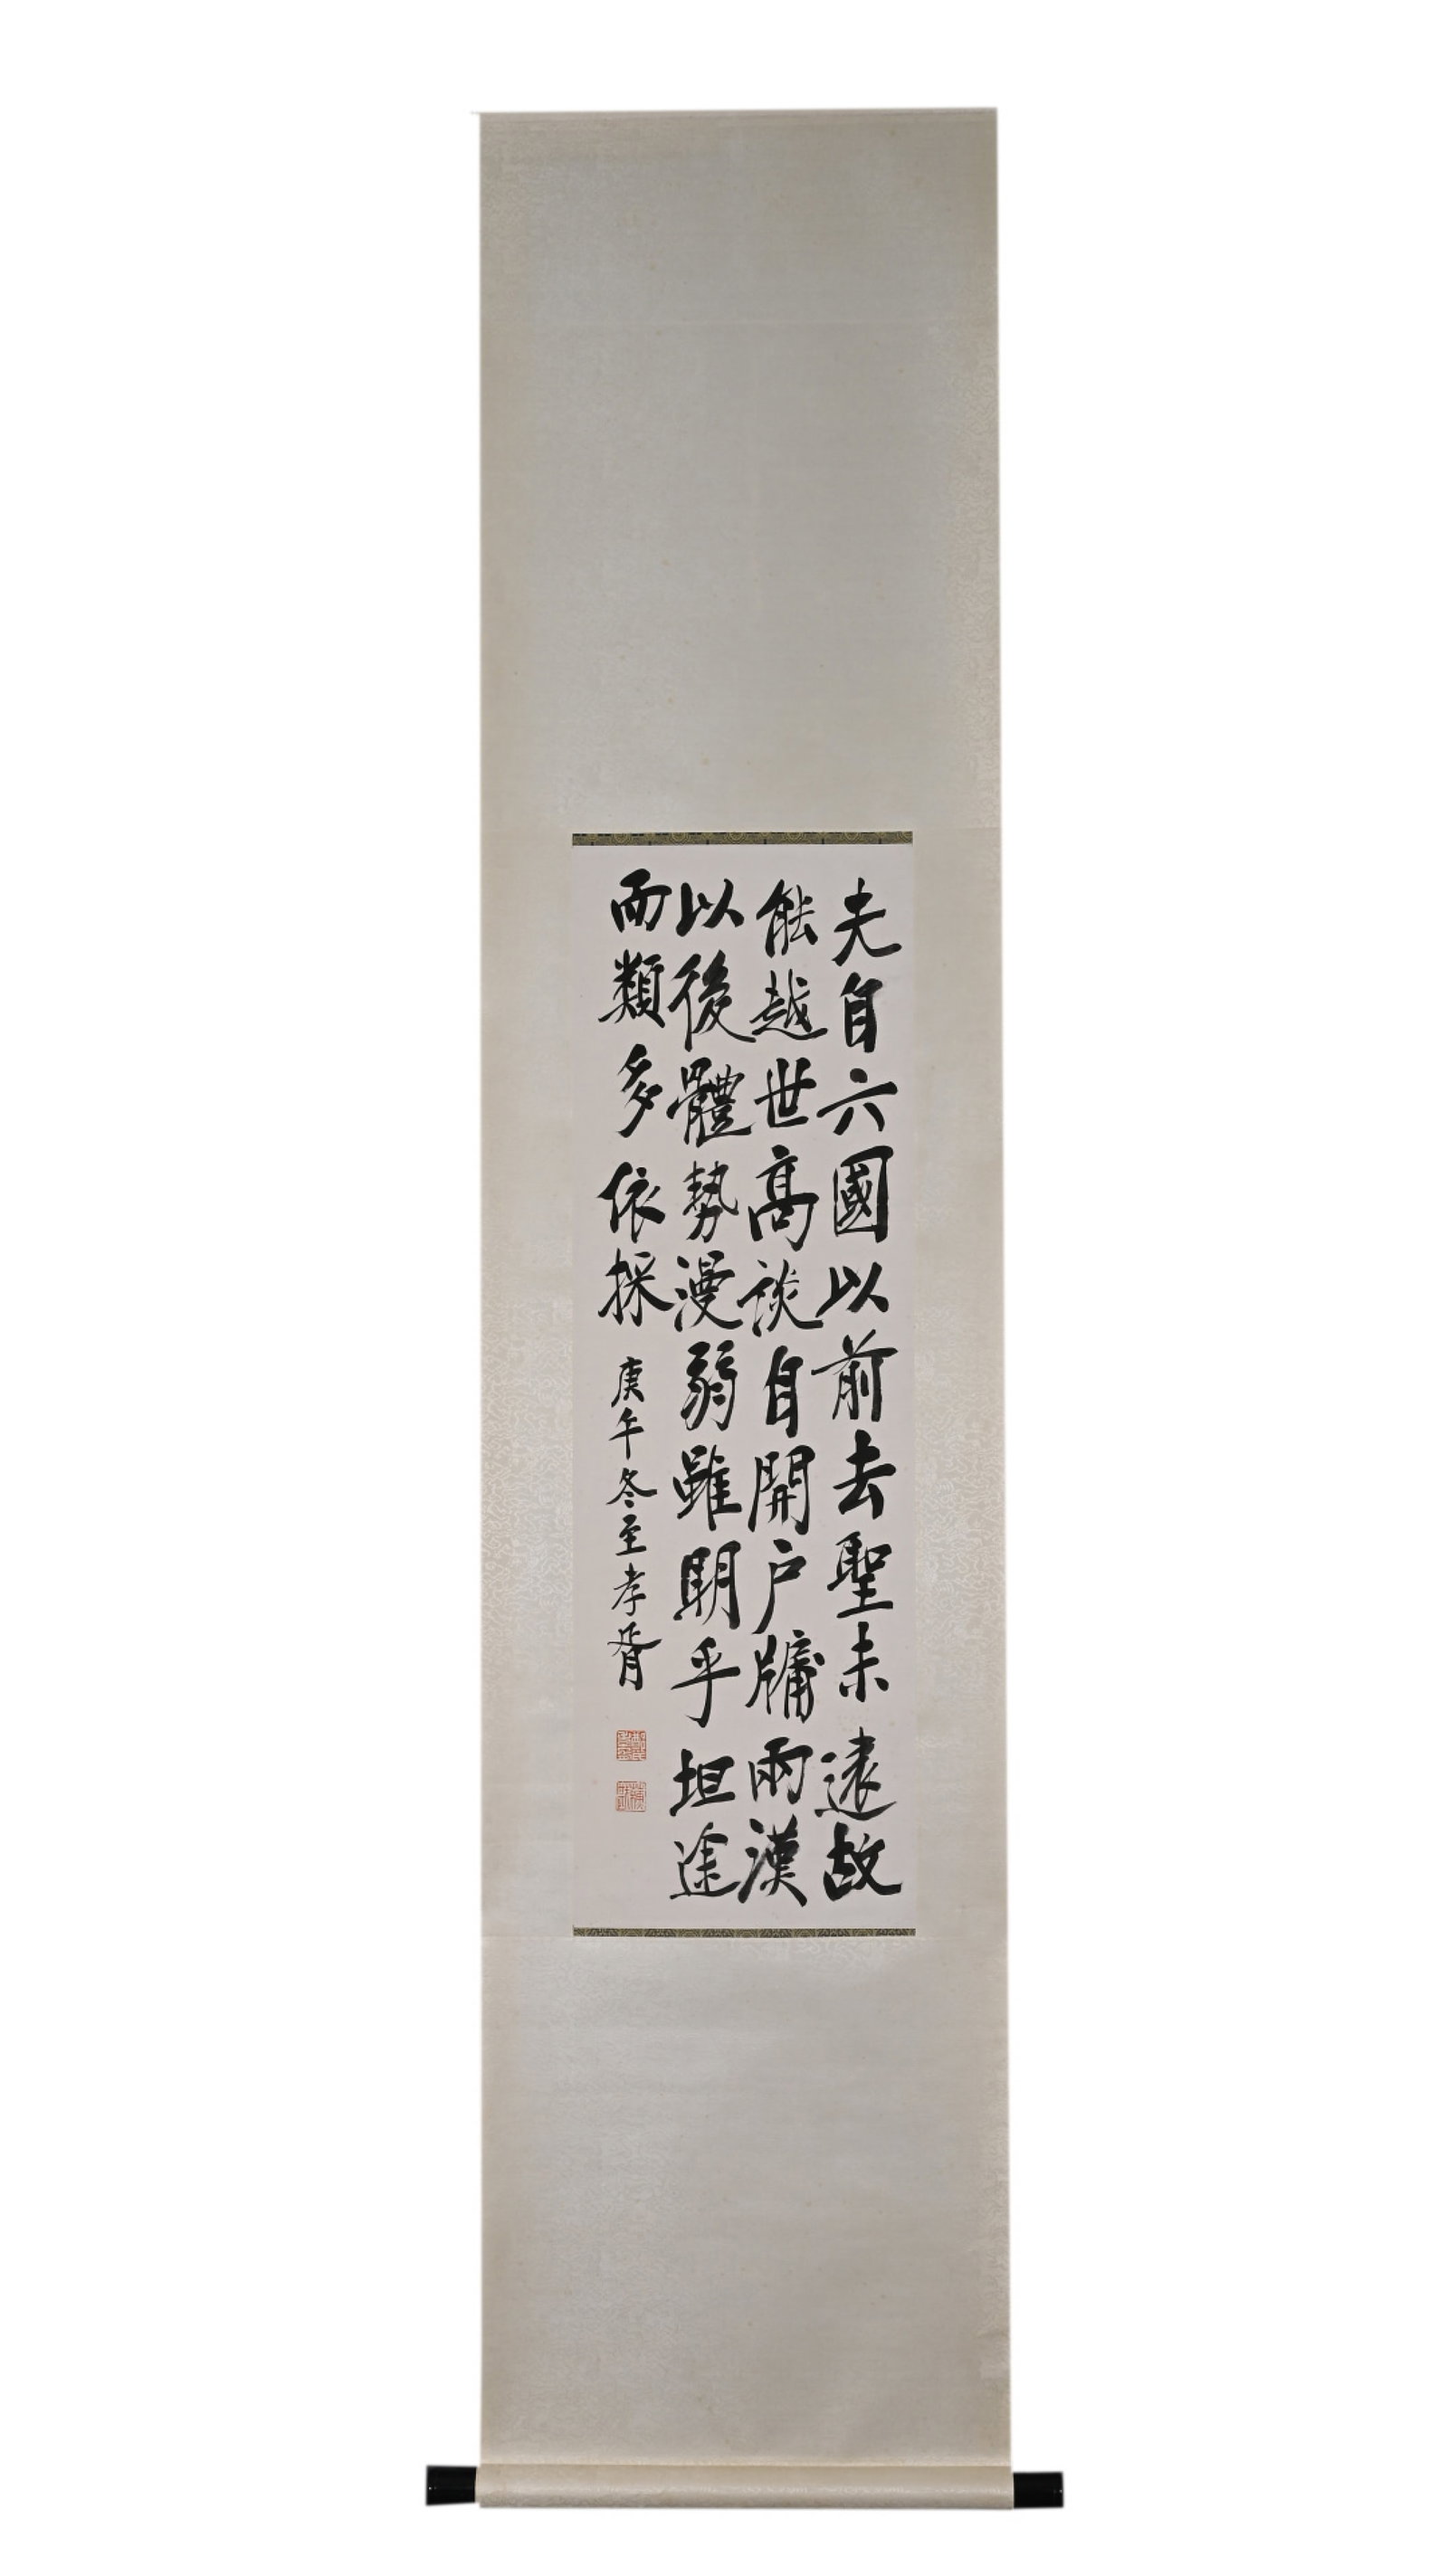 夫自六國以前去聖未遠故
能越世高談自開户牖兩漢
以後體勢漫弱雖明乎坦途
而類多依採
庚午冬至孝胥